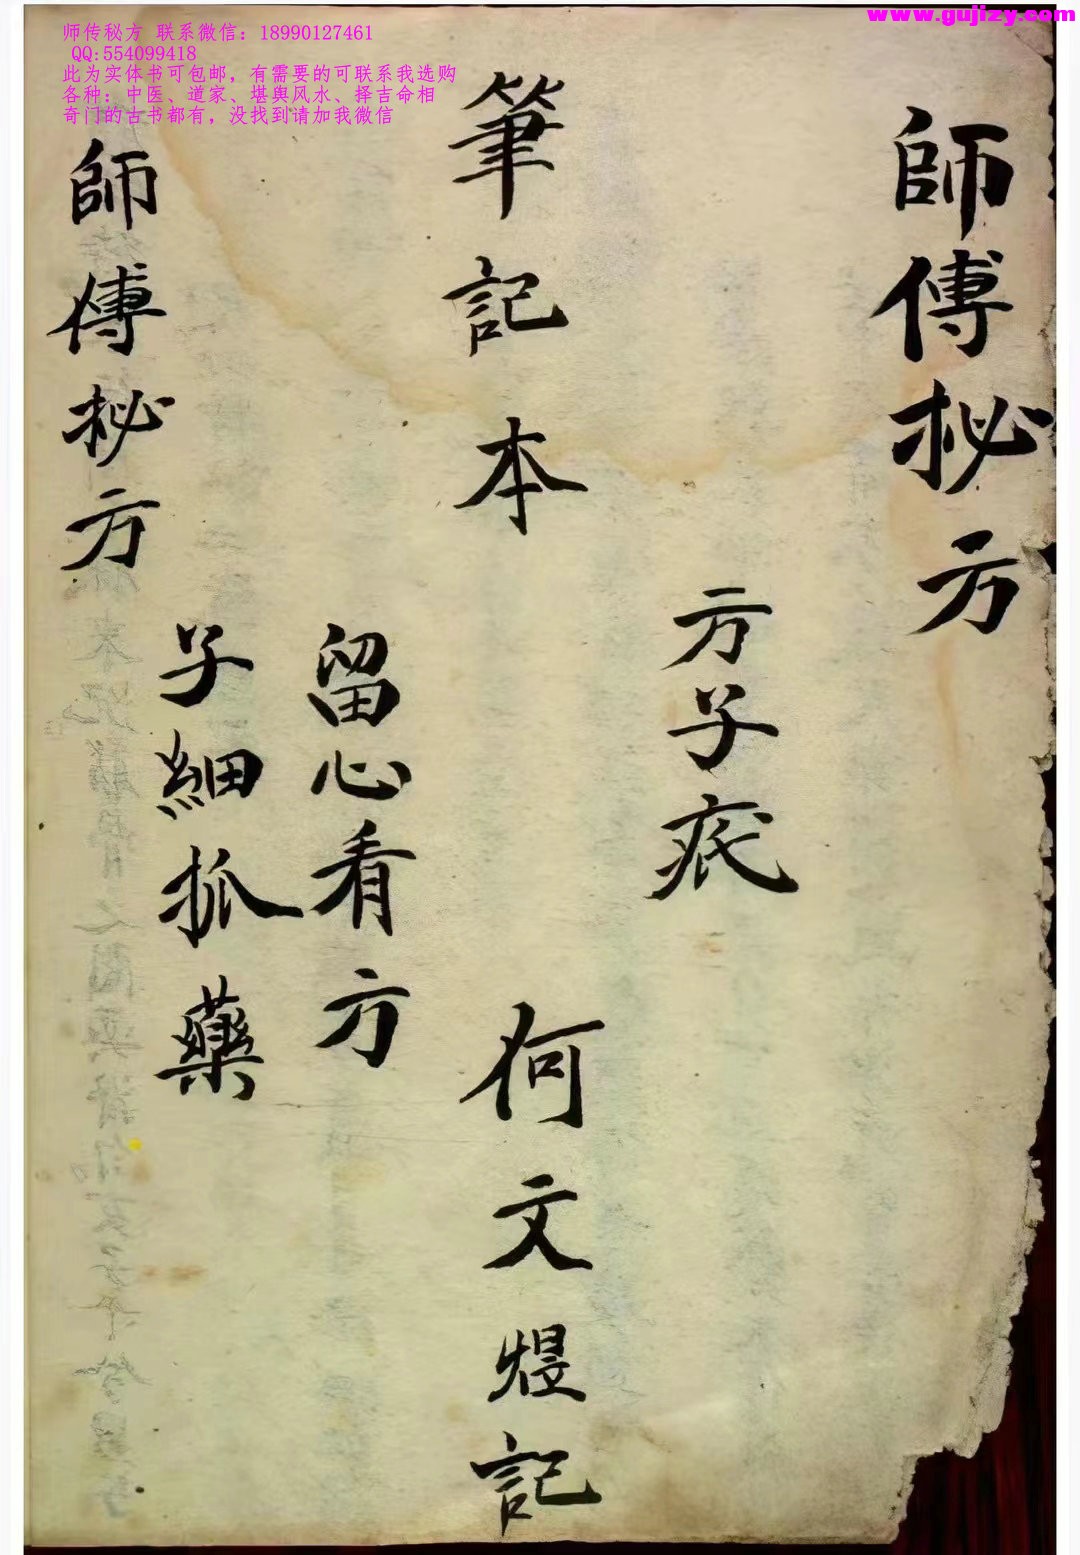 www.gujizy.com
师传秘方 联系微信：18990127461
QQ:554099418
此为实体书可包邮，有需要的可联系我选购
各种：中医、道家、堪舆风水、择吉命相
奇门的古书都有，没找到请加我微信
師傅秘方
方子
筆記本
何文煜記
留心看方
子細抓藥
師傅秘方